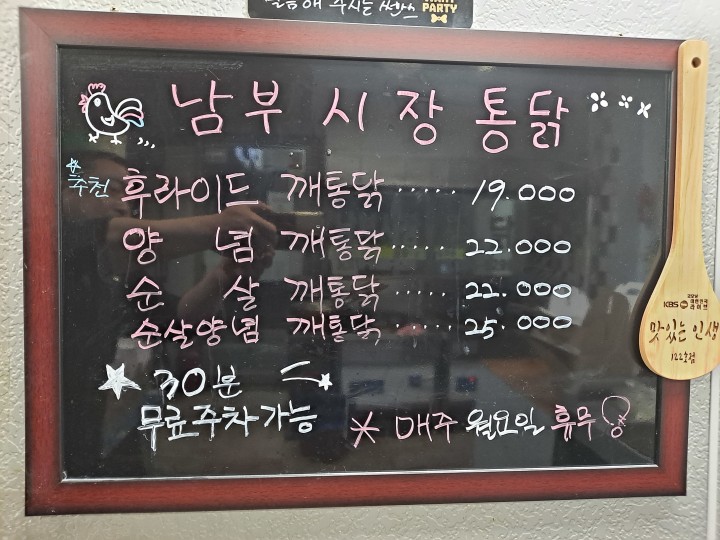 PARTY
남부시장 통닭
추천 후라이드 깨통닭 ..... 19.000
양 념 깨통닭 ..... 22.000
순 살 깨통닭 ..... 22.000
순살양념 깨통닭 ..... 25.000
30분
무료주차가능
매주 월요일 휴무
KBS
맛있는 인생
122호점